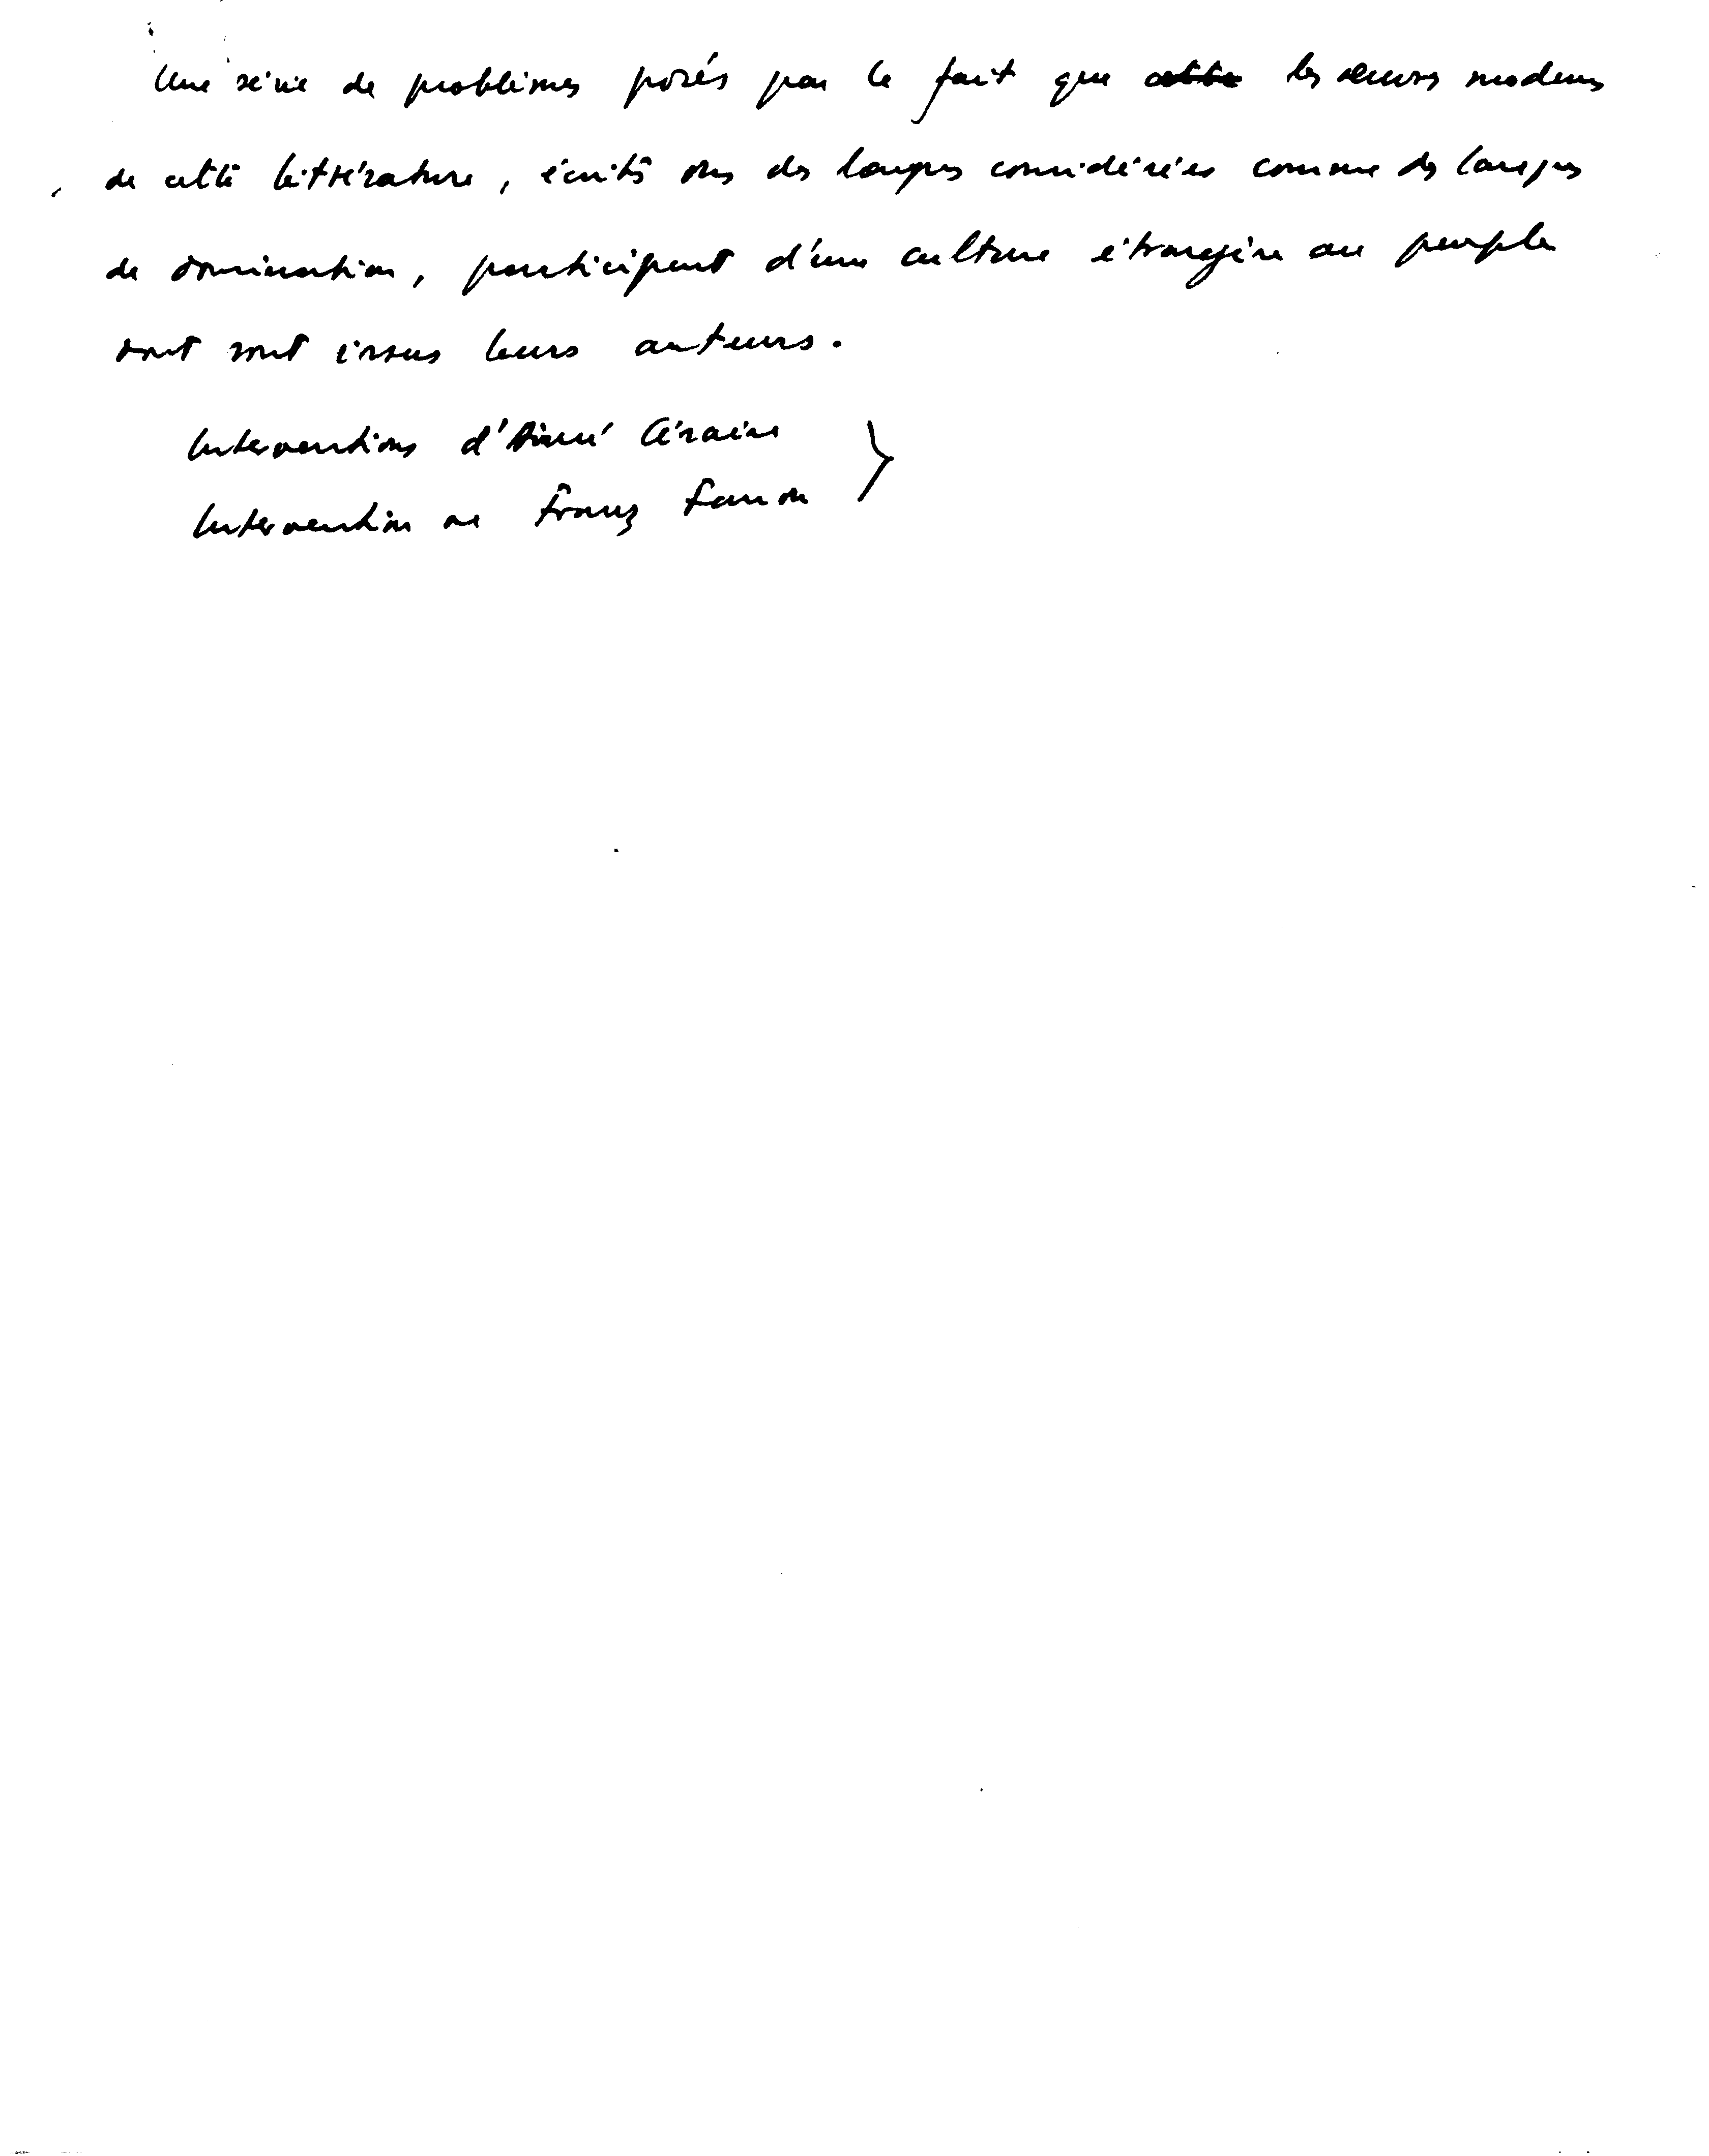 Une série de problèmes posés par le fait que cette les œuvres modernes
de cette littérature, écrites dans des langues considérées comme des langues
de domination, participent d'une culture étrangère au peuple
dont sont issus leurs auteurs.
Interventions d'Aimé Césaire
Intervention de Franz Fanon